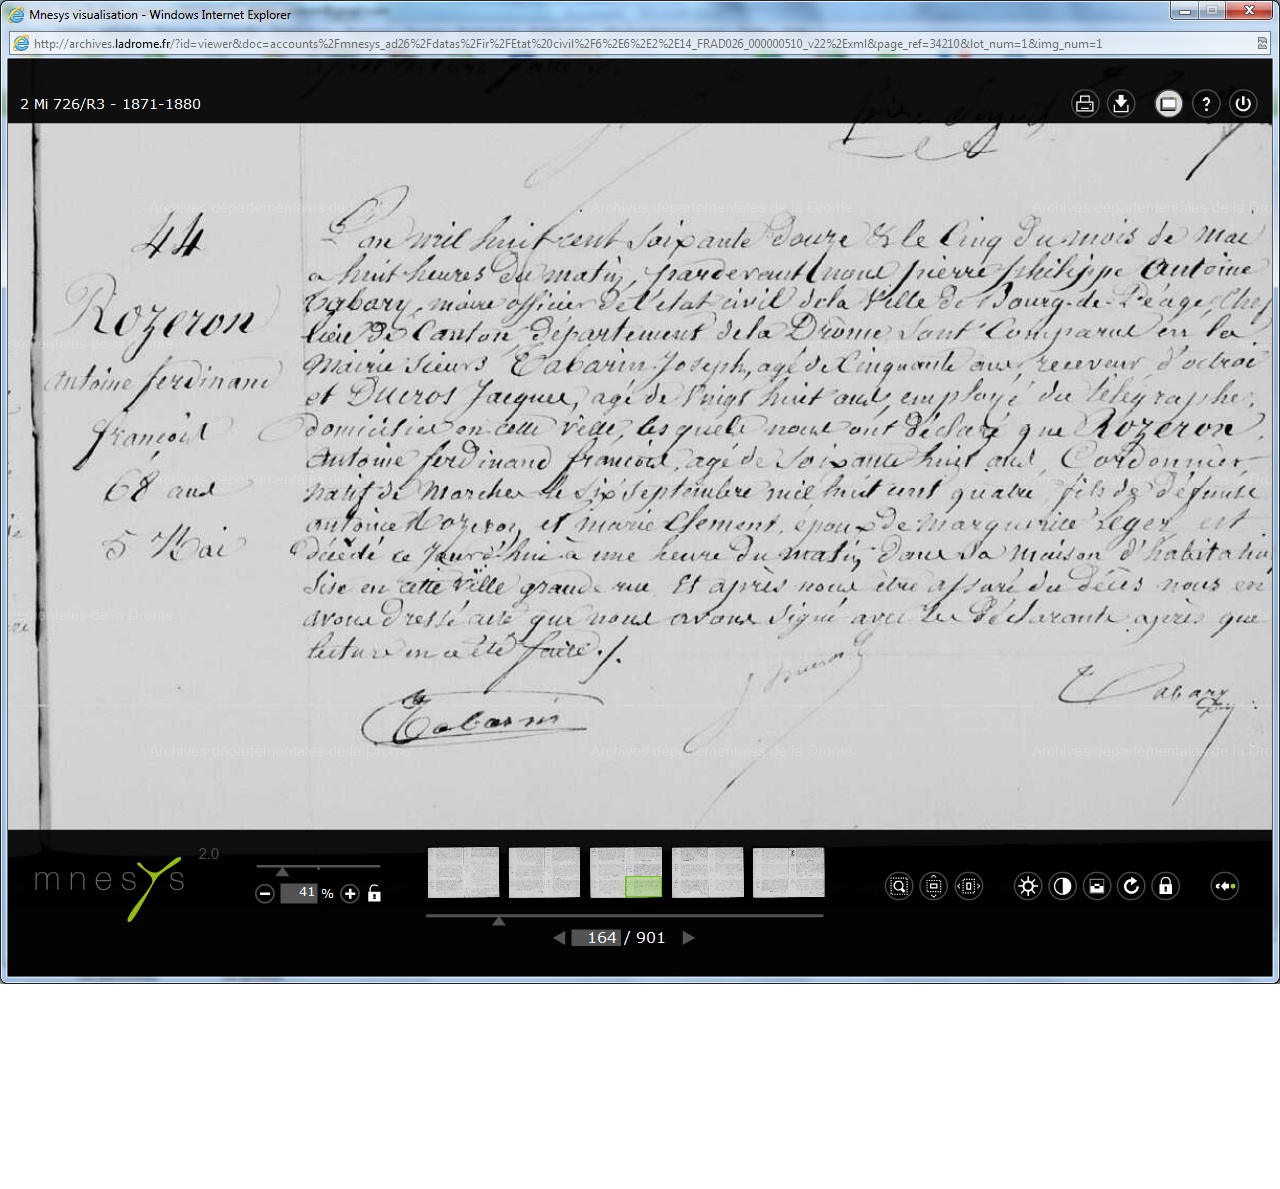 Mnesys visualisation - Windows Internet Explorer
http://archives.ladrome.fr/?id=viewer&doc=accounts%2Fmnesys_ad26%2Fdatas%2Fir%2FEtat%20civil%2F6%2E6%2E2%2E14_FRAD026_000000510_v22%2Exml&page_ref=34210&lot_num=1&img_num=1
2 Mi 726/R3 - 1871-1880
44
Rozeron
antoine ferdinand
françois
68 ans
5 Mai
L'an mil huit cent soixante douze & le Cinq du mois de mai
a huit heures du matin, pardevant nous pierre philippe Antoine
Tabary, maire officier de l'état civil de la Ville de Bourg-de-Péage, Chef
lieu de Canton, département de la Drome sont Comparus en la
Mairie sieurs Tabarin Joseph, agé de Cinquante ans, receveur d'octroi
et Ducros Jacques, agé de Vingt huit ans, employé du télégraphe,
domiciliés en cette ville, les quels nous ont déclaré que Rozeron
Antoine ferdinand françois, agé de soixante huit ans, Cordonnier
natif de Marches le six septembre mil huit cent quatre fils de défunts
antoine Rozeron et marie Clement, époux de Marguerite Leger est
décédé ce jourd'hui à une heure du matin dans sa maison d'habitation
sise en cette ville grande rue Et après nous être assuré du décès nous en
avons dressé acte que nous avons signé avec les déclarants après que
lecture en a été faite ./.
Tabarin
Tabary
Archives départementales de la Drome
mnesys
2.0
41 %
164 / 901